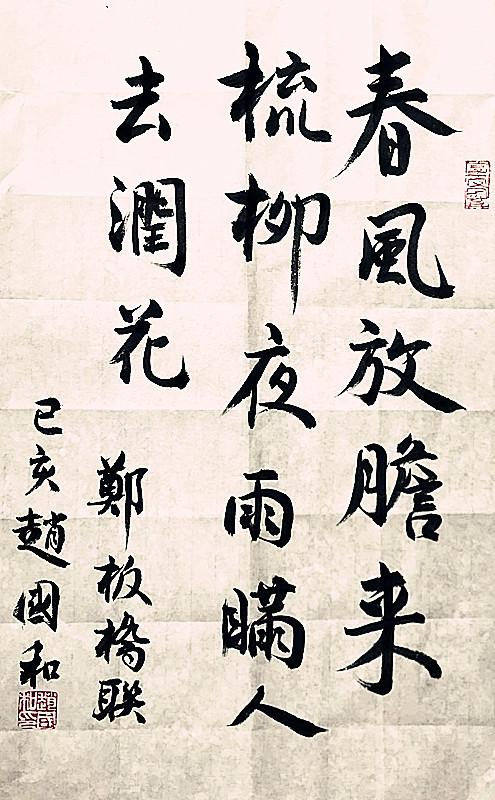 春風放膽来
梳柳夜雨瞞人
去潤花
鄭板橋联
己亥趙國和